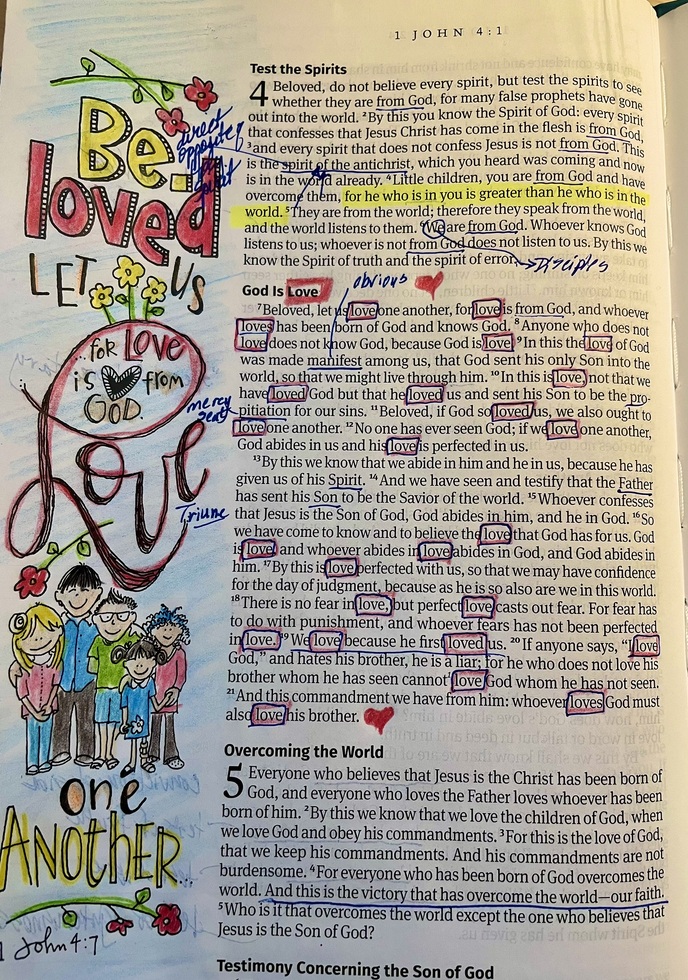 1 JOHN 4:1
Test the Spirits
4 Beloved, do not believe every spirit, but test the spirits to see
whether they are from God, for many false prophets have gone
out into the world. 2By this you know the Spirit of God: every spirit
that confesses that Jesus Christ has come in the flesh is from God,
3and every spirit that does not confess Jesus is not from God. This
is the spirit of the antichrist, which you heard was coming and now
is in the world already. 4Little children, you are from God and have
overcome them, for he who is in you is greater than he who is in the
world. 5They are from the world; therefore they speak from the world,
and the world listens to them. 6We are from God. Whoever knows God
listens to us; whoever is not from God does not listen to us. By this we
know the Spirit of truth and the spirit of error.
Disciples
God Is Love
obvious
7Beloved, let us love one another, for love is from God, and whoever
loves has been born of God and knows God. 8Anyone who does not
love does not know God, because God is love. 9In this the love of God
was made manifest among us, that God sent his only Son into the
world, so that we might live through him. 10In this is love, not that we
have loved God but that he loved us and sent his Son to be the pro-
pitiation for our sins. 11Beloved, if God so loved us, we also ought to
love one another. 12No one has ever seen God; if we love one another,
God abides in us and his love is perfected in us.
13By this we know that we abide in him and he in us, because he has
given us of his Spirit. 14And we have seen and testify that the Father
has sent his Son to be the Savior of the world. 15Whoever confesses
that Jesus is the Son of God, God abides in him, and he in God. 16So
we have come to know and to believe the love that God has for us. God
is love, and whoever abides in love abides in God, and God abides in
him. 17By this is love perfected with us, so that we may have confidence
for the day of judgment, because as he is so also are we in this world.
18There is no fear in love, but perfect love casts out fear. For fear has
to do with punishment, and whoever fears has not been perfected
in love. 19We love because he first loved us. 20If anyone says, “I love
God,” and hates his brother, he is a liar; for he who does not love his
brother whom he has seen cannot love God whom he has not seen.
21And this commandment we have from him: whoever loves God must
also love his brother.
Overcoming the World
5 Everyone who believes that Jesus is the Christ has been born of
God, and everyone who loves the Father loves whoever has been
born of him. 2By this we know that we love the children of God, when
we love God and obey his commandments. 3For this is the love of God,
that we keep his commandments. And his commandments are not
burdensome. 4For everyone who has been born of God overcomes the
world. And this is the victory that has overcome the world—our faith.
5Who is it that overcomes the world except the one who believes that
Jesus is the Son of God?
Testimony Concerning the Son of God
Be
loved
direct
opposite
LET US
...for Love
is from
GOD.
mercy
seat
Love
Triune
one
ANOTHER
1 John 4:7